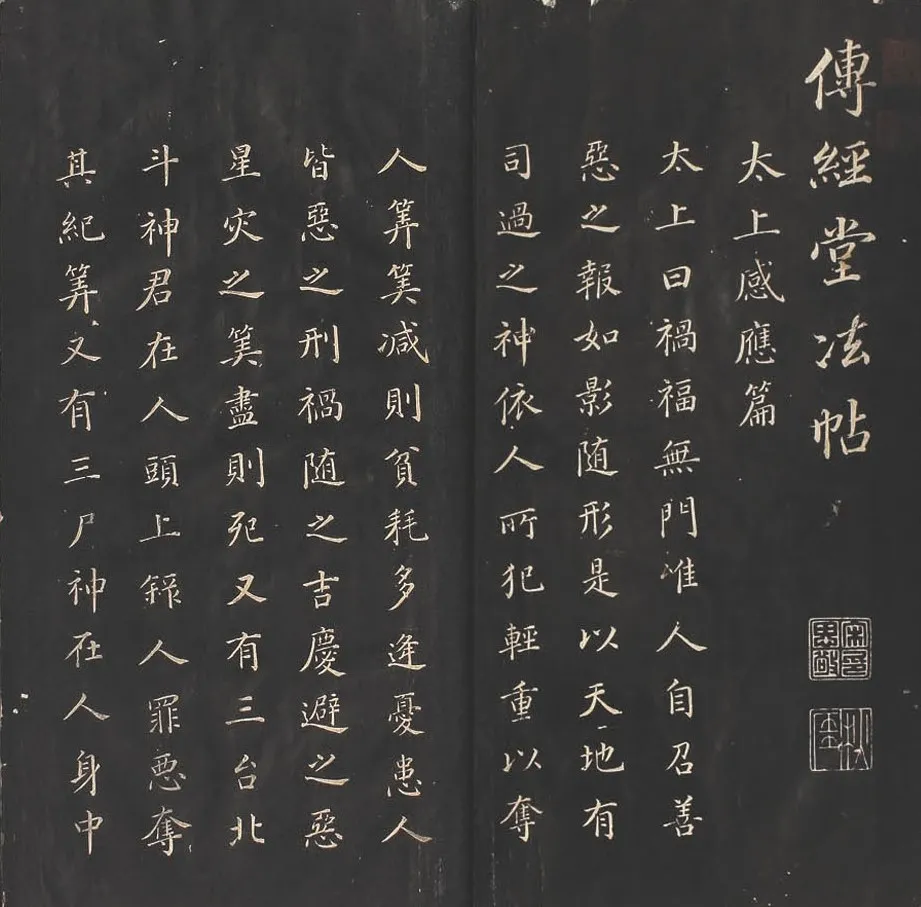 傳經堂法帖
太上感應篇
太上曰禍福無門唯人自召善
惡之報如影随形是以天地有
司過之神依人所犯輕重以奪
人筭筭减則貧耗多逢憂患人
皆惡之刑禍随之吉慶避之惡
星灾之筭盡則死又有三台北
斗神君在人頭上録人罪惡奪
其紀筭又有三尸神在人身中